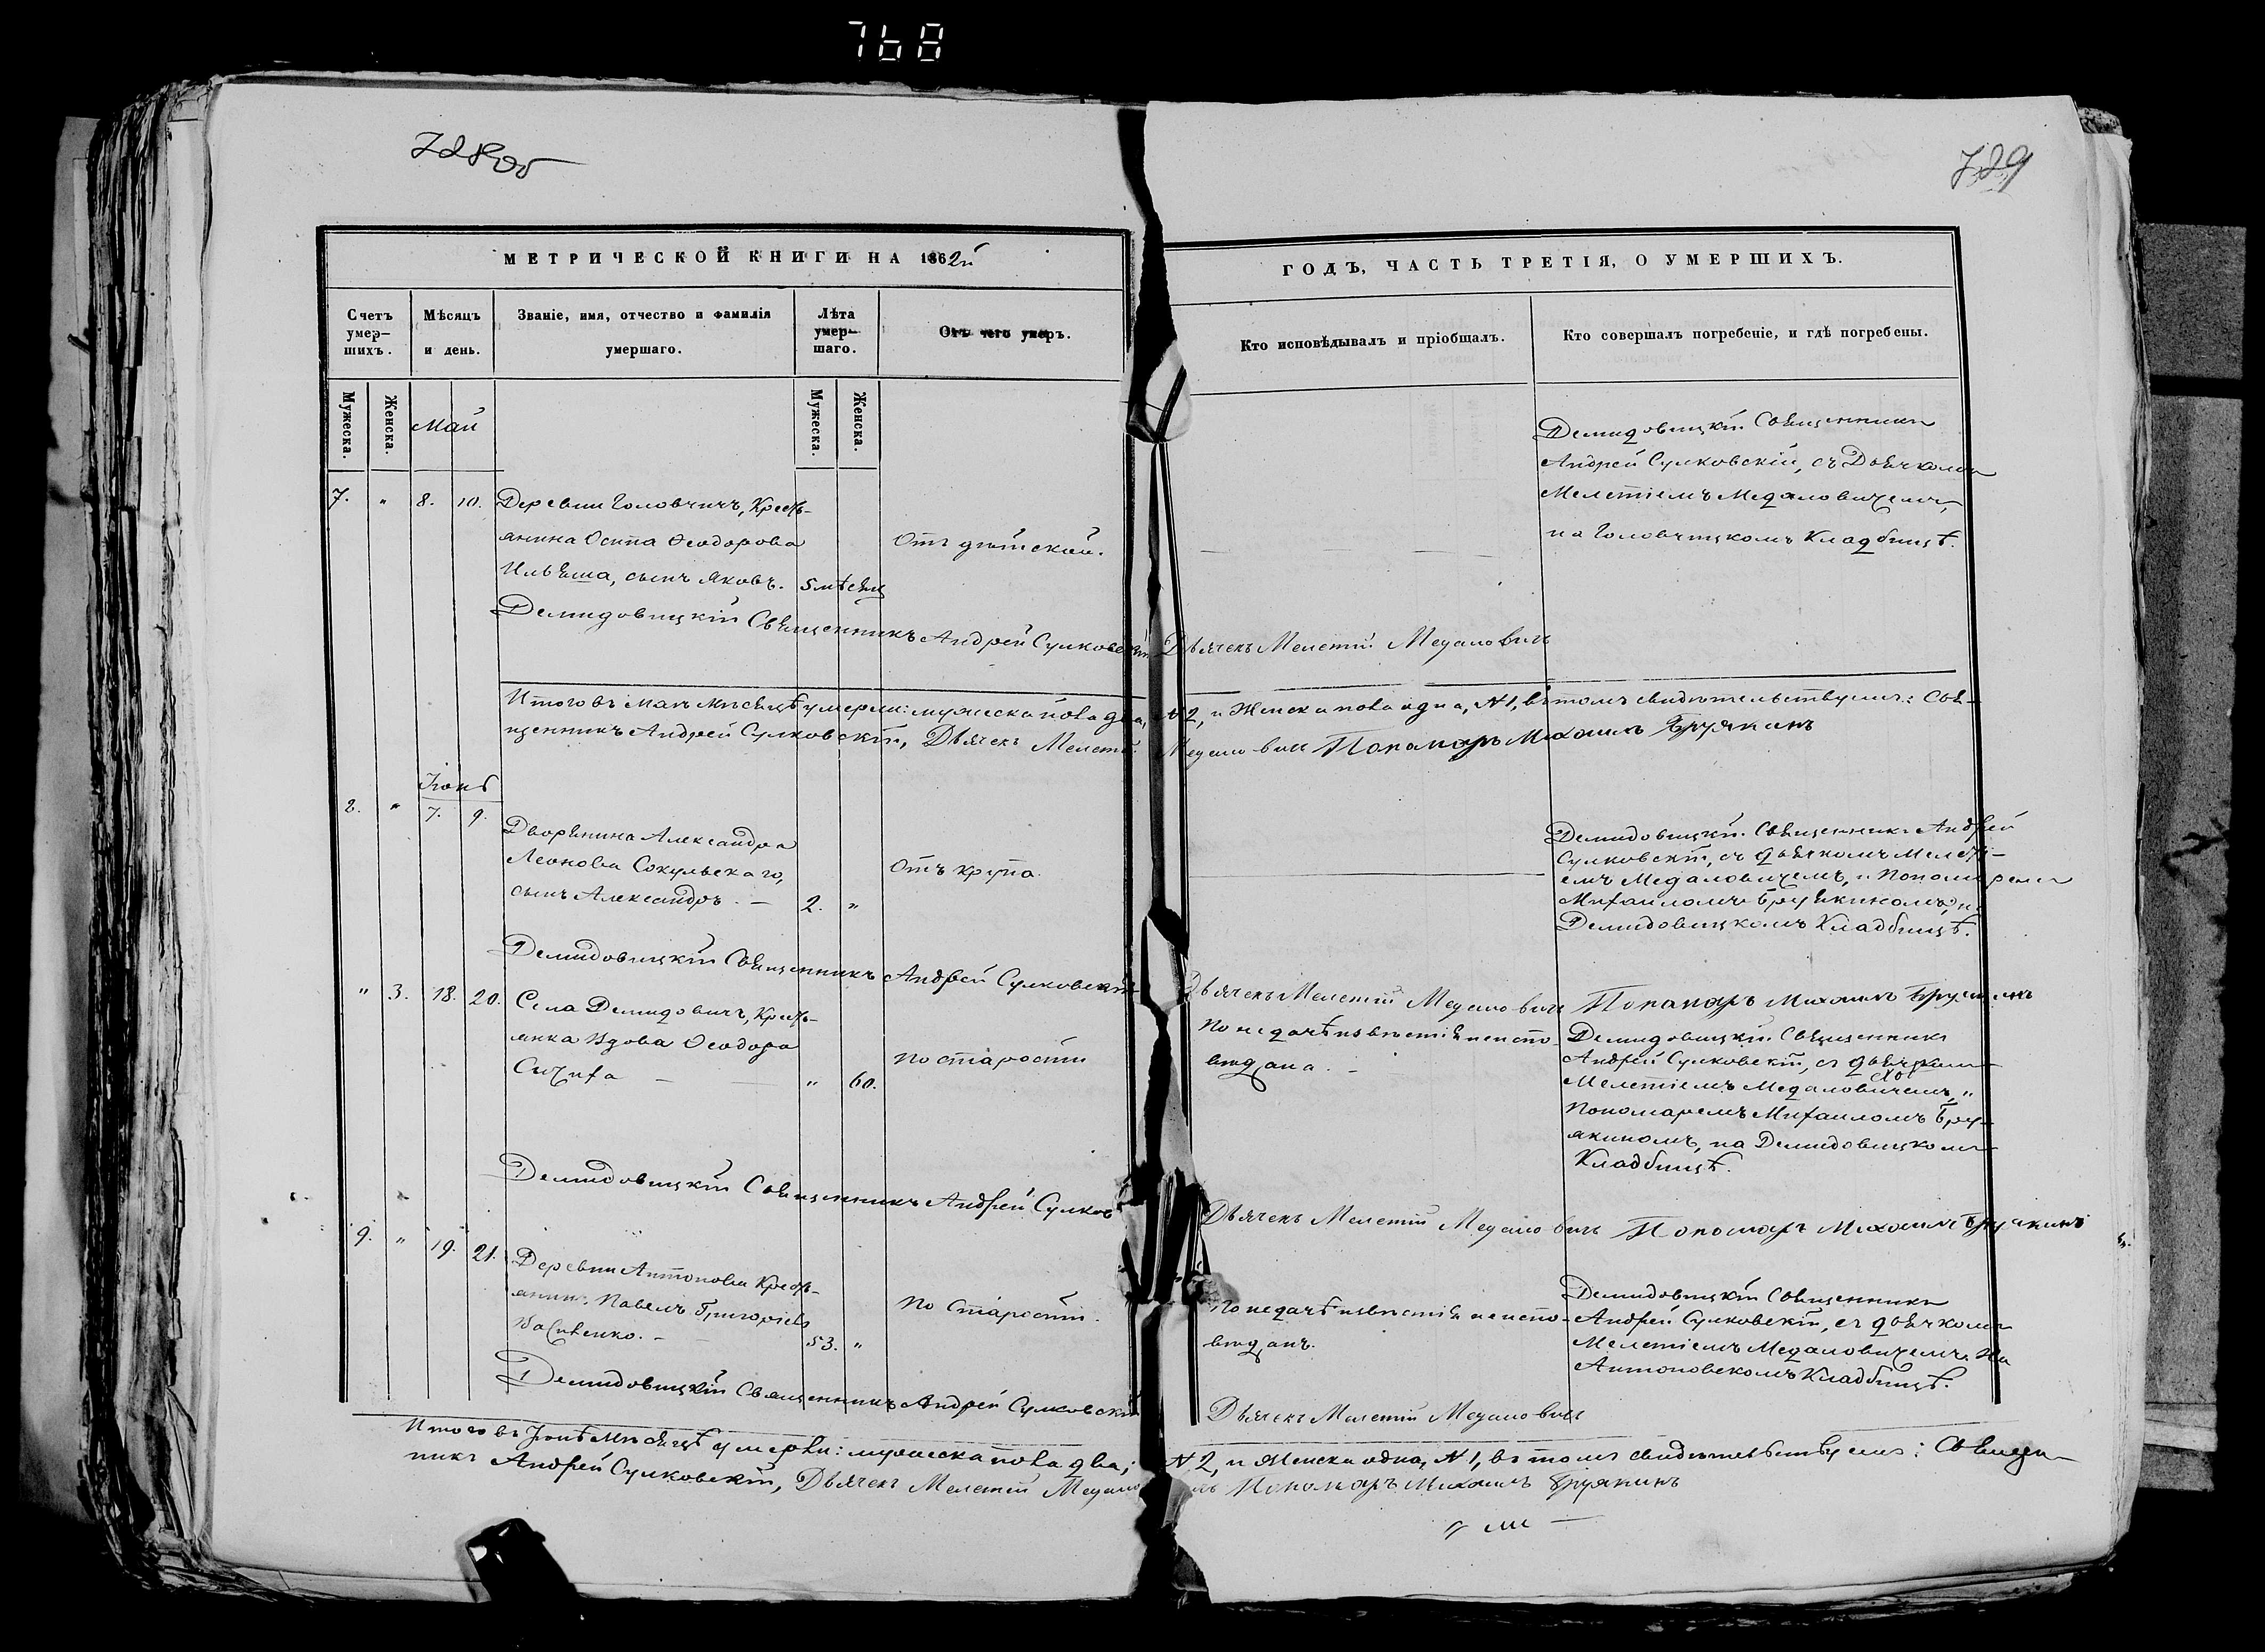 768
728об
729
МЕТРИЧЕСКОЙ КНИГИ НА 1862й
ГОДЪ, ЧАСТЬ ТРЕТІЯ, О УМЕРШИХЪ.
Счетъ умер–шихъ.
Мѣсяцъ и день.
Званіе, имя, отчество и фамилія умершаго.
Лѣта умер–шаго.
Отъ чего умеръ.
Кто исповѣдывалъ и пріобщалъ.
Кто совершалъ погребеніе, и гдѣ погребены.
Мужеска.
Женска.
Май
Мужеска.
Женска.
7. " 8. 10.
Деревни Головчичъ, Кресть-
янина Осипа Ѳеодорова
Ильѣша, сынъ Яковъ. 5 мѣсяц
Отъ дѣтской.
Демидовицкій Священникъ
Андрей Сулковскій, съ Дьячкомъ
Мелетіемъ Медаловичемъ,
на Головчицкомъ Кладбищѣ.
Демидовицкій Священникъ Андрей Сулковскій Дьячекъ Мелетій Медаловичъ
Итого въ Маѣ мѣсяцѣ умерли: мужеска пола два, №2, и Женска пола одна, №1, въ томъ свидѣтельствуемъ: Свя-
щенникъ Андрей Сулковскій, Дьячекъ Мелетій Медаловичъ Пономаръ Михаилъ Брукинъ
Іюнь
8. " 7. 9.
Дворянина Александра
Леонова Сокульскаго,
сынъ Александръ. – 2. "
Отъ крупа.
Демидовицкій Священникъ Андрей
Сулковскій, съ дьячкомъ Мелеті-
емъ Медаловичемъ, и Пономаремъ
Михаиломъ Бруякиномъ, на
Демидовицкомъ Кладбищѣ.
Демидовицкій Священникъ Андрей Сулковскій Дьячекъ Мелетій Медаловичъ Пономаръ Михаилъ Бруякинъ
" 3. 18. 20.
Села Демидовичъ, Кресть-
янка Вдова Ѳеодора
– " 60.
По старости
По недачѣ извѣстія не испо-
вѣдана. –
Демидовицкій Священникъ
Андрей Сулковскій, съ дьячкомъ
Мелетіемъ Медаловичемъ, "
Пономаремъ Михаиломъ Бру-
якиномъ, на Демидовицкомъ
Кладбищѣ.
Демидовицкій Священникъ Андрей Сулков Дьячекъ Мелетій Медаловичъ Пономаръ Михаилъ Бруякинъ
9. " 19. 21.
Деревни Антоновки Кресть-
янинъ Павелъ Григорьевъ
53. "
По Старости.
По недачѣ извѣстія не испо-
вѣданъ.
Демидовицкій Священникъ
Андрей Сулковскій, съ дьячкомъ
Мелетіемъ Медаловичемъ. На
Антоновскомъ Кладбищѣ.
Демидовицкій Священникъ Андрей Сулковскій Дьячекъ Мелетій Медаловичъ
Итого въ Іюнѣ Мѣсяцѣ умерли: мужеска пола два; №2, и Женска одна, №1, въ томъ свидѣтельствуемъ: Священ-
никъ Андрей Сулковскій, Дьячекъ Мелетій Медаловичъ Пономаръ Михаилъ Бруякинъ